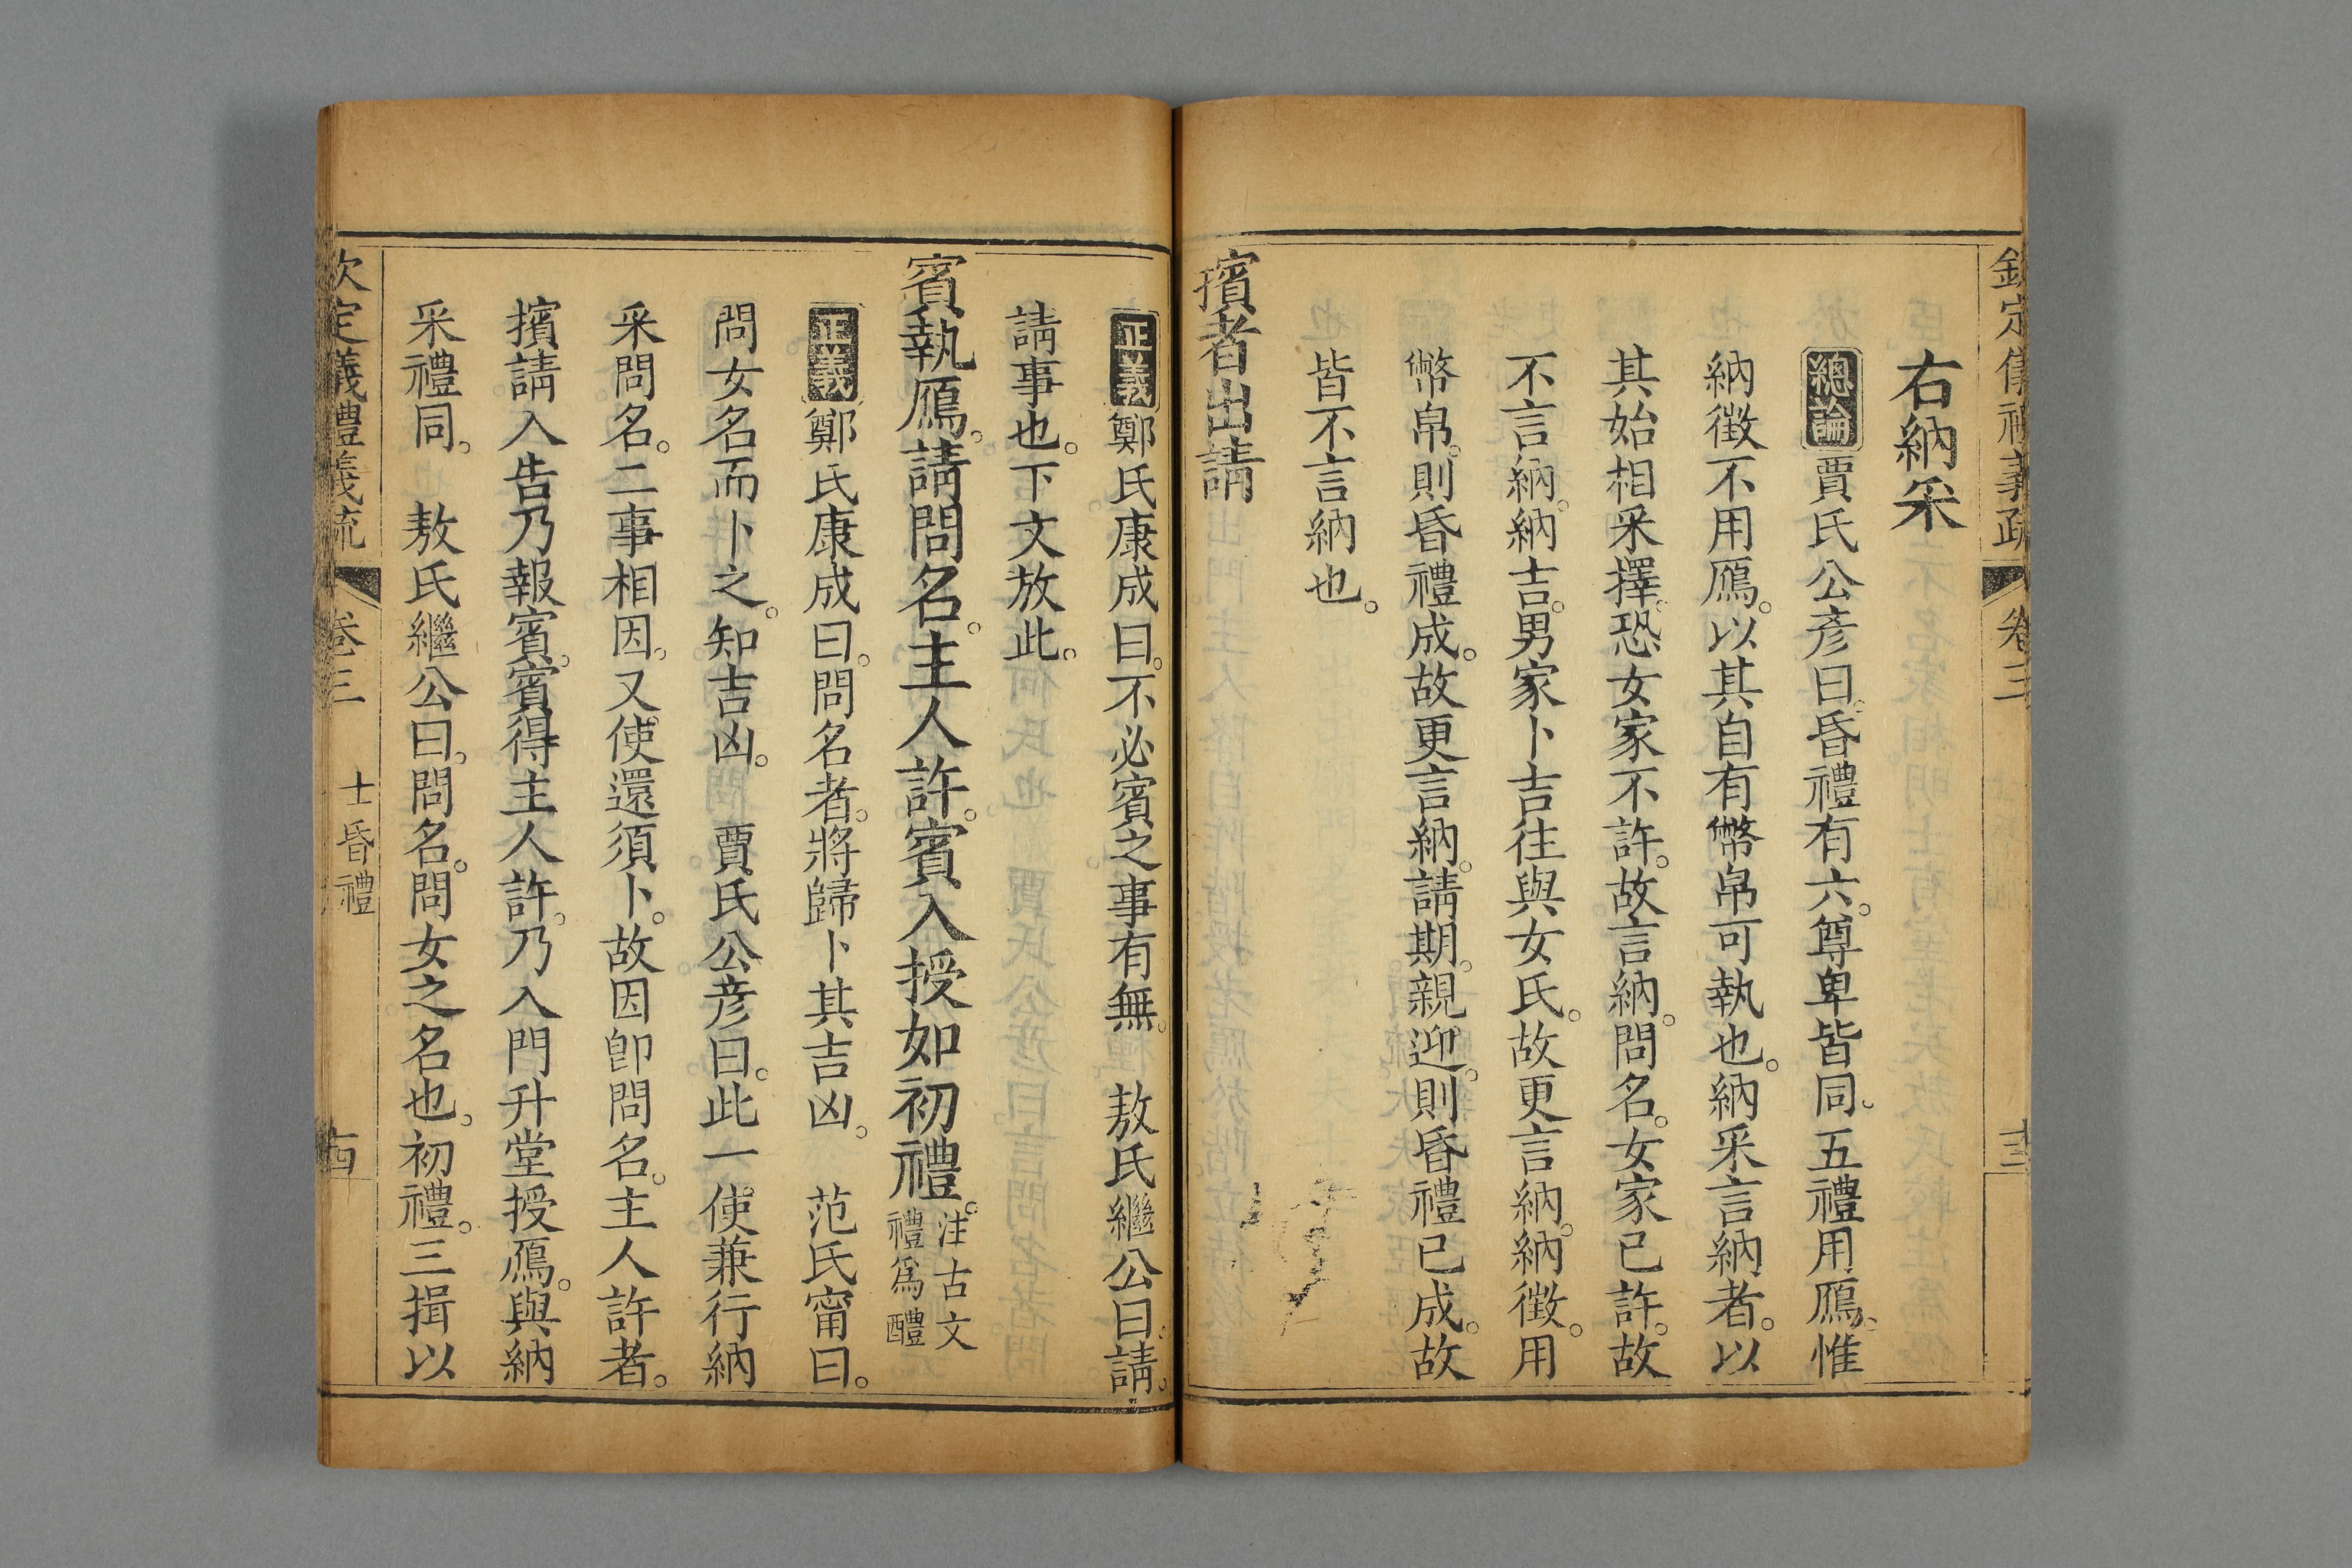 欽定儀禮義疏 卷三 十三
右納采
總論 賈氏公彥曰。昏禮有六。尊卑皆同。五禮用鴈。惟
納徵不用鴈。以其自有幣帛可執也。納采言納者。以
其始相采擇。恐女家不許。故言納。問名。女家已許。故
不言納。納吉。男家卜吉往與女氏。故更言納。納徵。用
幣帛。則昏禮成。故更言納。請期。親迎。則昏禮已成。故
皆不言納也。
擯者出請
正義 鄭氏康成曰。不必賓之事有無。 敖氏繼公曰。請。
請事也。下文放此。
賓執鴈。請問名。主人許。賓入授如初禮。注古文
禮爲醴
正義 鄭氏康成曰。問名者。將歸卜其吉凶。 范氏甯曰。
問女名而卜之。知吉凶。 賈氏公彥曰。此一使兼行納
采問名。二事相因。又使還須卜。故因卽問名。主人許者。
擯請入告乃報賓。賓得主人許。乃入門升堂授鴈。與納
采禮同。 敖氏繼公曰。問名。問女之名也。初禮。三揖以
欽定儀禮義疏 卷三 士昏禮 十四